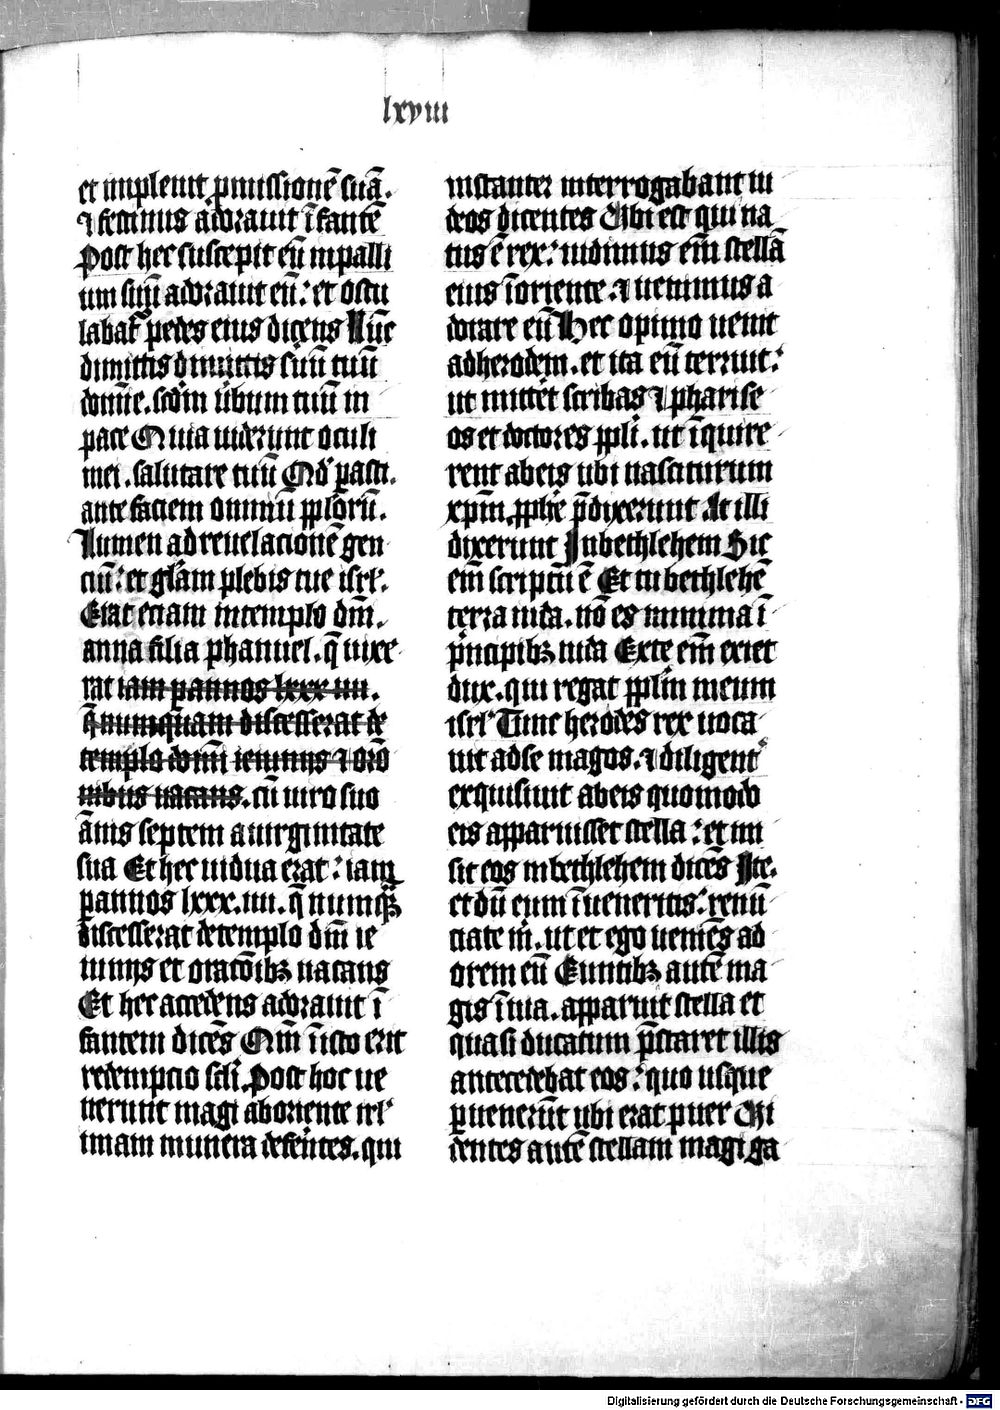 lxviii
et impleuit p̱missionē suā.
⁊ festinus adorauit īfantē
Post hec suscepit eū inpalli
um suū adorauit eū: et oscu
labat᷑ pedes eius dicens Nūc
dimittis dimittis suū tuū
domīe. scdm úbum tuū in
pace Quia uiderunt oculi
mei. salutare tuū Qd̓ parasti.
ante faciem omniū ppl̓orū.
Lumen ad reuelacionē gen
ciū: et gl̄am plebis tue isrl̓.
Erat etiam intemplo dm̄.
anna filia phanuel. q̄ uixe
rat iam p annos lxxx iiii.
q̄ numquam discesserat de
templo dom̄i ieiuniis ⁊ oracō
nibus uacans. cū uiro suo
ānis septem auirginitate
sua Et hec uidua erat: iam
p annos lxxx.iiii. q̄ numqꝫ
discesserat detemplo dm̄ ie
iuniis et oracōibꝫ uacans
Et hec accedens adorauit ī
fantem dicēs Qm̄ īisto erit
redempcio scl̓i. Post hoc ue
nerunt magi aboriente irl̓
imam munera deferentes. qui
instanter interrogabant iu
deos dicentes Ubi est qui na
tus ē rex: uidimus em̄ stellā
eius īoriente. ⁊ uenimus a
dorare eū Hec opinio uenit
adherodem. et ita eū terruit:
ut mitteret scribas ⁊ pharise
os et doctores ppli. ut īquire
rent abeis ubi nasciturum
xpm̄ pphe p̄dixerunt At illi
dixerunt Inbethlehem Sic
em̄ scriptū ē Et tu bethlehē
terra iuda. nō es minima ī
p̓ncipibꝫ iuda Ex te em̄ exiet
dux. qui regat ppl̄m meum
isrl̓ Tunc herodes rex uoca
uit adse magos. ⁊ diligent᷑
exquisiuit abeis quomodo
eis apparuisset stella: et mi
sit eos inbethlehem dicēs Ite.
et dū eum īueneritis: renū
ciate m̓. ut et ego ueniēs ad
orem eū Euntibꝫ autē ma
gis īuia. apparuit stella et
quasi ducatum p̄staret illis
antecedebat eos: quo usque
p̱uenerūt ubi erat puer Ui
dentes autē stellam magi ga
Digitalisierung gefördert durch die Deutsche Forschungsgemeinschaft - DFG